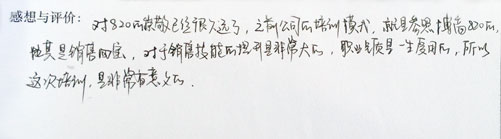 感想与评价：对820崇敬已经很久远了，之前公司的培训模式，就是参照博商820的，
尤其是销售四宝，对于销售技能的提升是非常大的，职业素质是一生受用的，所以
这次培训，是非常有意义的。